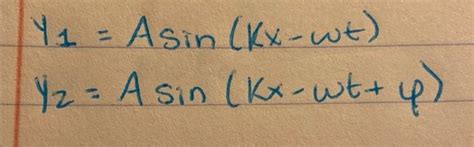 y1 = A sin (Kx - ωt)
y2 = A sin (Kx - ωt + φ)